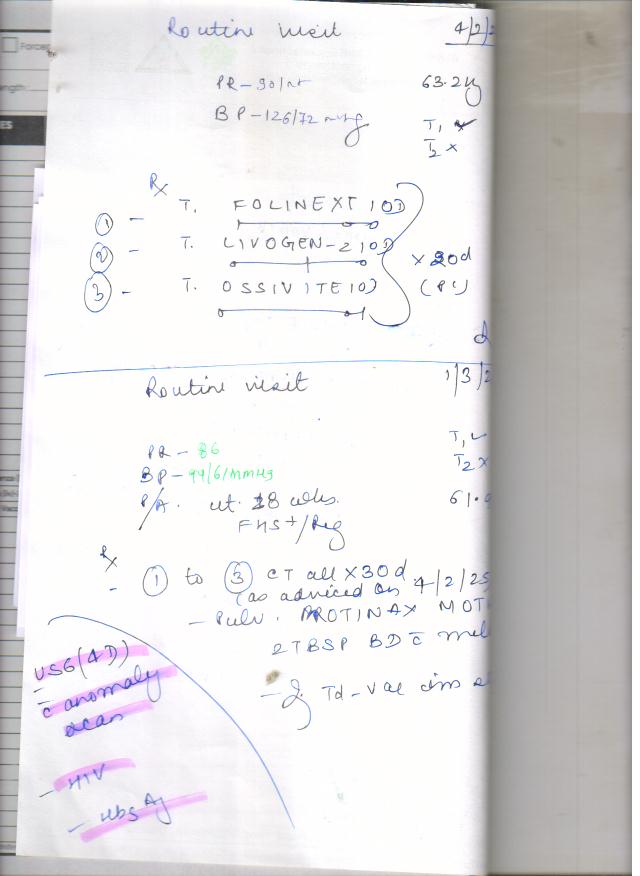 Routine visit 4/2/2
PR - 90/mt 63.2kg
BP - 126/72 mmHg
T1 ✓
T2 x
Rx
① - T. FOLINEXT 1OD
② - T. LIVOGEN-Z 1OD
③ - T. OSSIVITE 1OD
x 30d
(PC)
Routine visit 1/3/2
PR - 86 T1 ✓
BP - 94/6/mmHg T2 x
P/A. ut. 18 wks. 61.
FHS+/Reg
Rx
- ① to ③ CT all X 30d
(as adviced on 4/2/25
- Pulv. PROTINAX MOT
2TBSP BD c̄ mil
- Inj. Td-Vac
USG (4D)
c̄ anomaly
scan
- HIV
- HbsAg
Forces
ength
ES